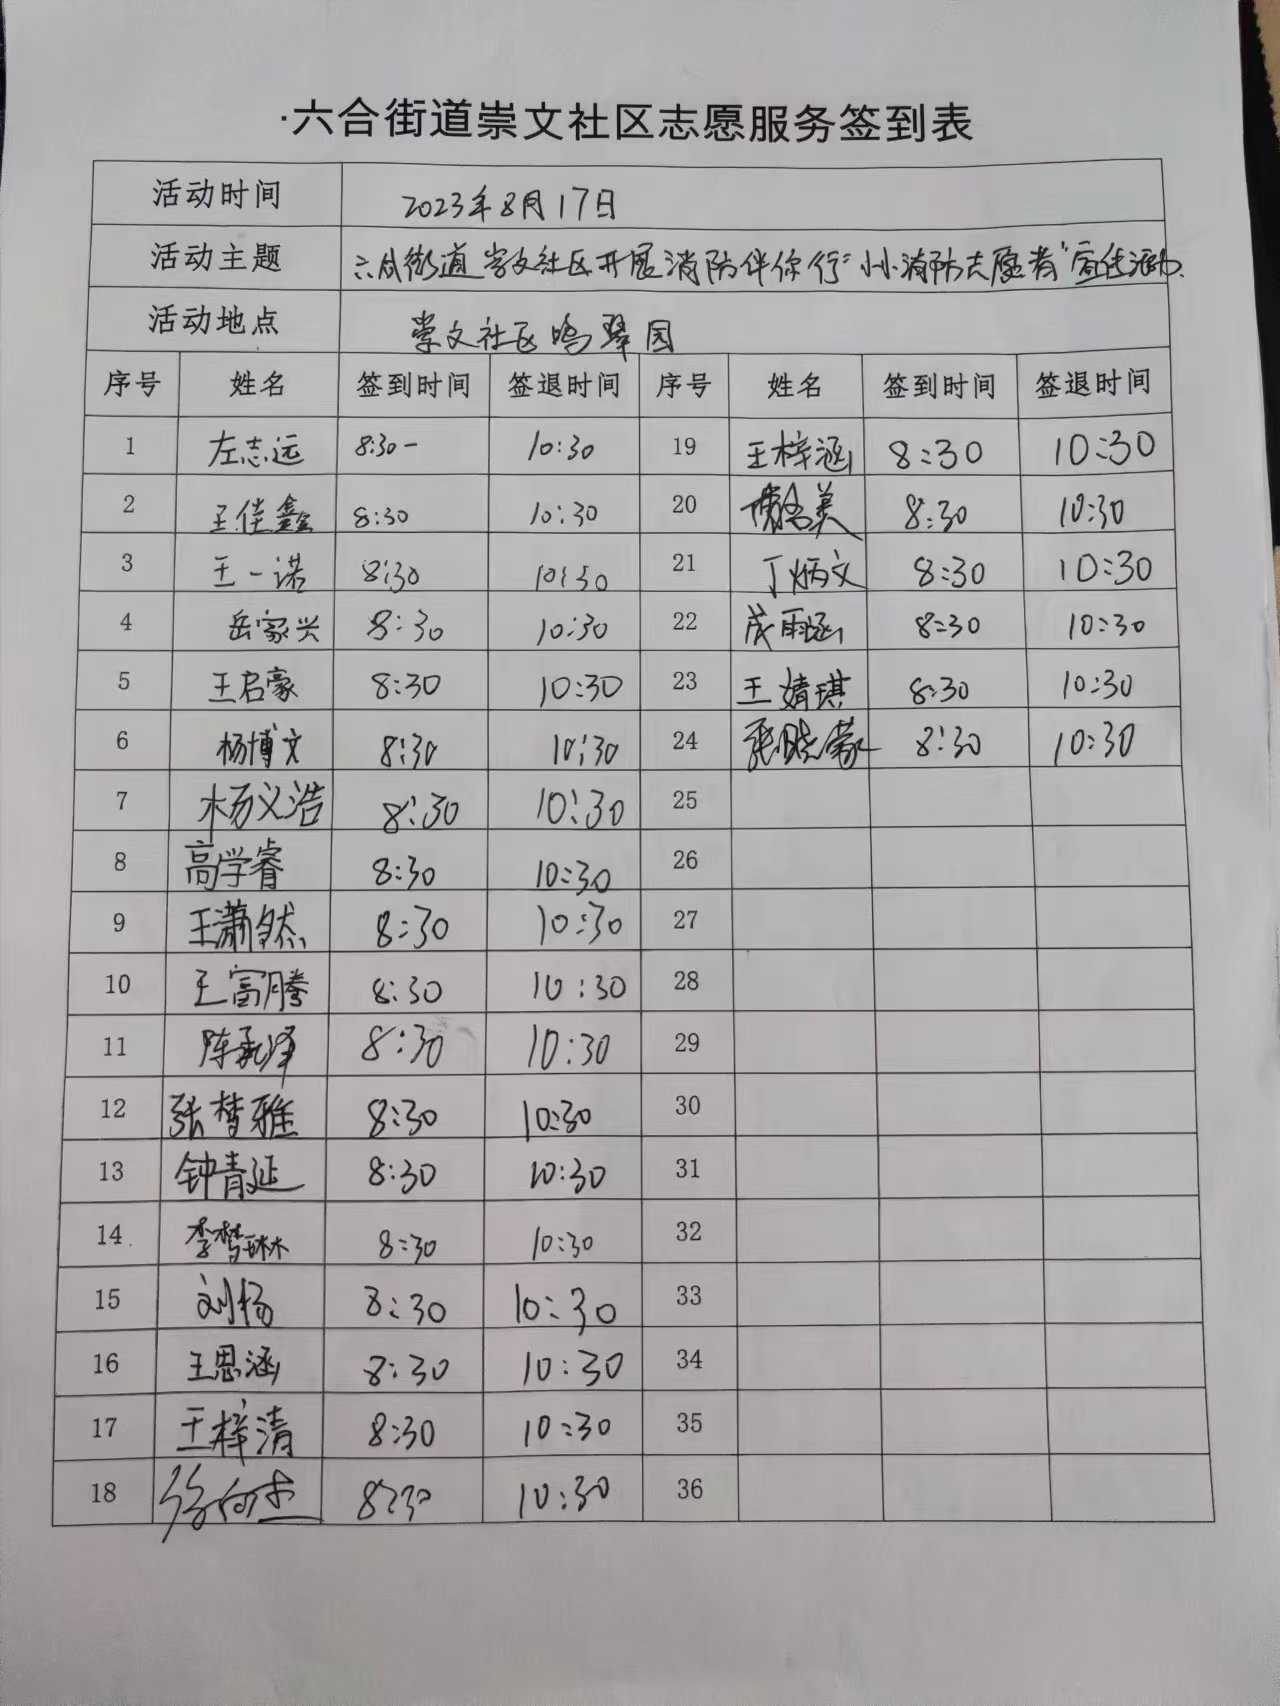 ·六合街道崇文社区志愿服务签到表
活动时间 2023年8月17日
活动主题 六合街道崇文社区开展消防伴你行"小小消防志愿者"宣传活动
活动地点 崇文社区鸣翠园
序号 姓名 签到时间 签退时间 序号 姓名 签到时间 签退时间
1 左志远 8:30- 10:30 19 王梓涵 8:30 10:30
2 王佳鑫 8:30 10:30 20 8:30 10:30
3 王一诺 8:30 10:30 21 丁炳文 8:30 10:30
4 岳家兴 8:30 10:30 22 雨涵 8:30 10:30
5 王启豪 8:30 10:30 23 王婧琪 8:30 10:30
6 杨博文 8:30 10:30 24 张晓蒙 8:30 10:30
7 杨义浩 8:30 10:30 25
8 高学睿 8:30 10:30 26
9 王潇然 8:30 10:30 27
10 王富腾 8:30 10:30 28
11 陈承泽 8:30 10:30 29
12 张梦雅 8:30 10:30 30
13 钟青延 8:30 10:30 31
14 李梦琳 8:30 10:30 32
15 刘杨 8:30 10:30 33
16 王思涵 8:30 10:30 34
17 王梓清 8:30 10:30 35
18 徐向杰 8:30 10:30 36